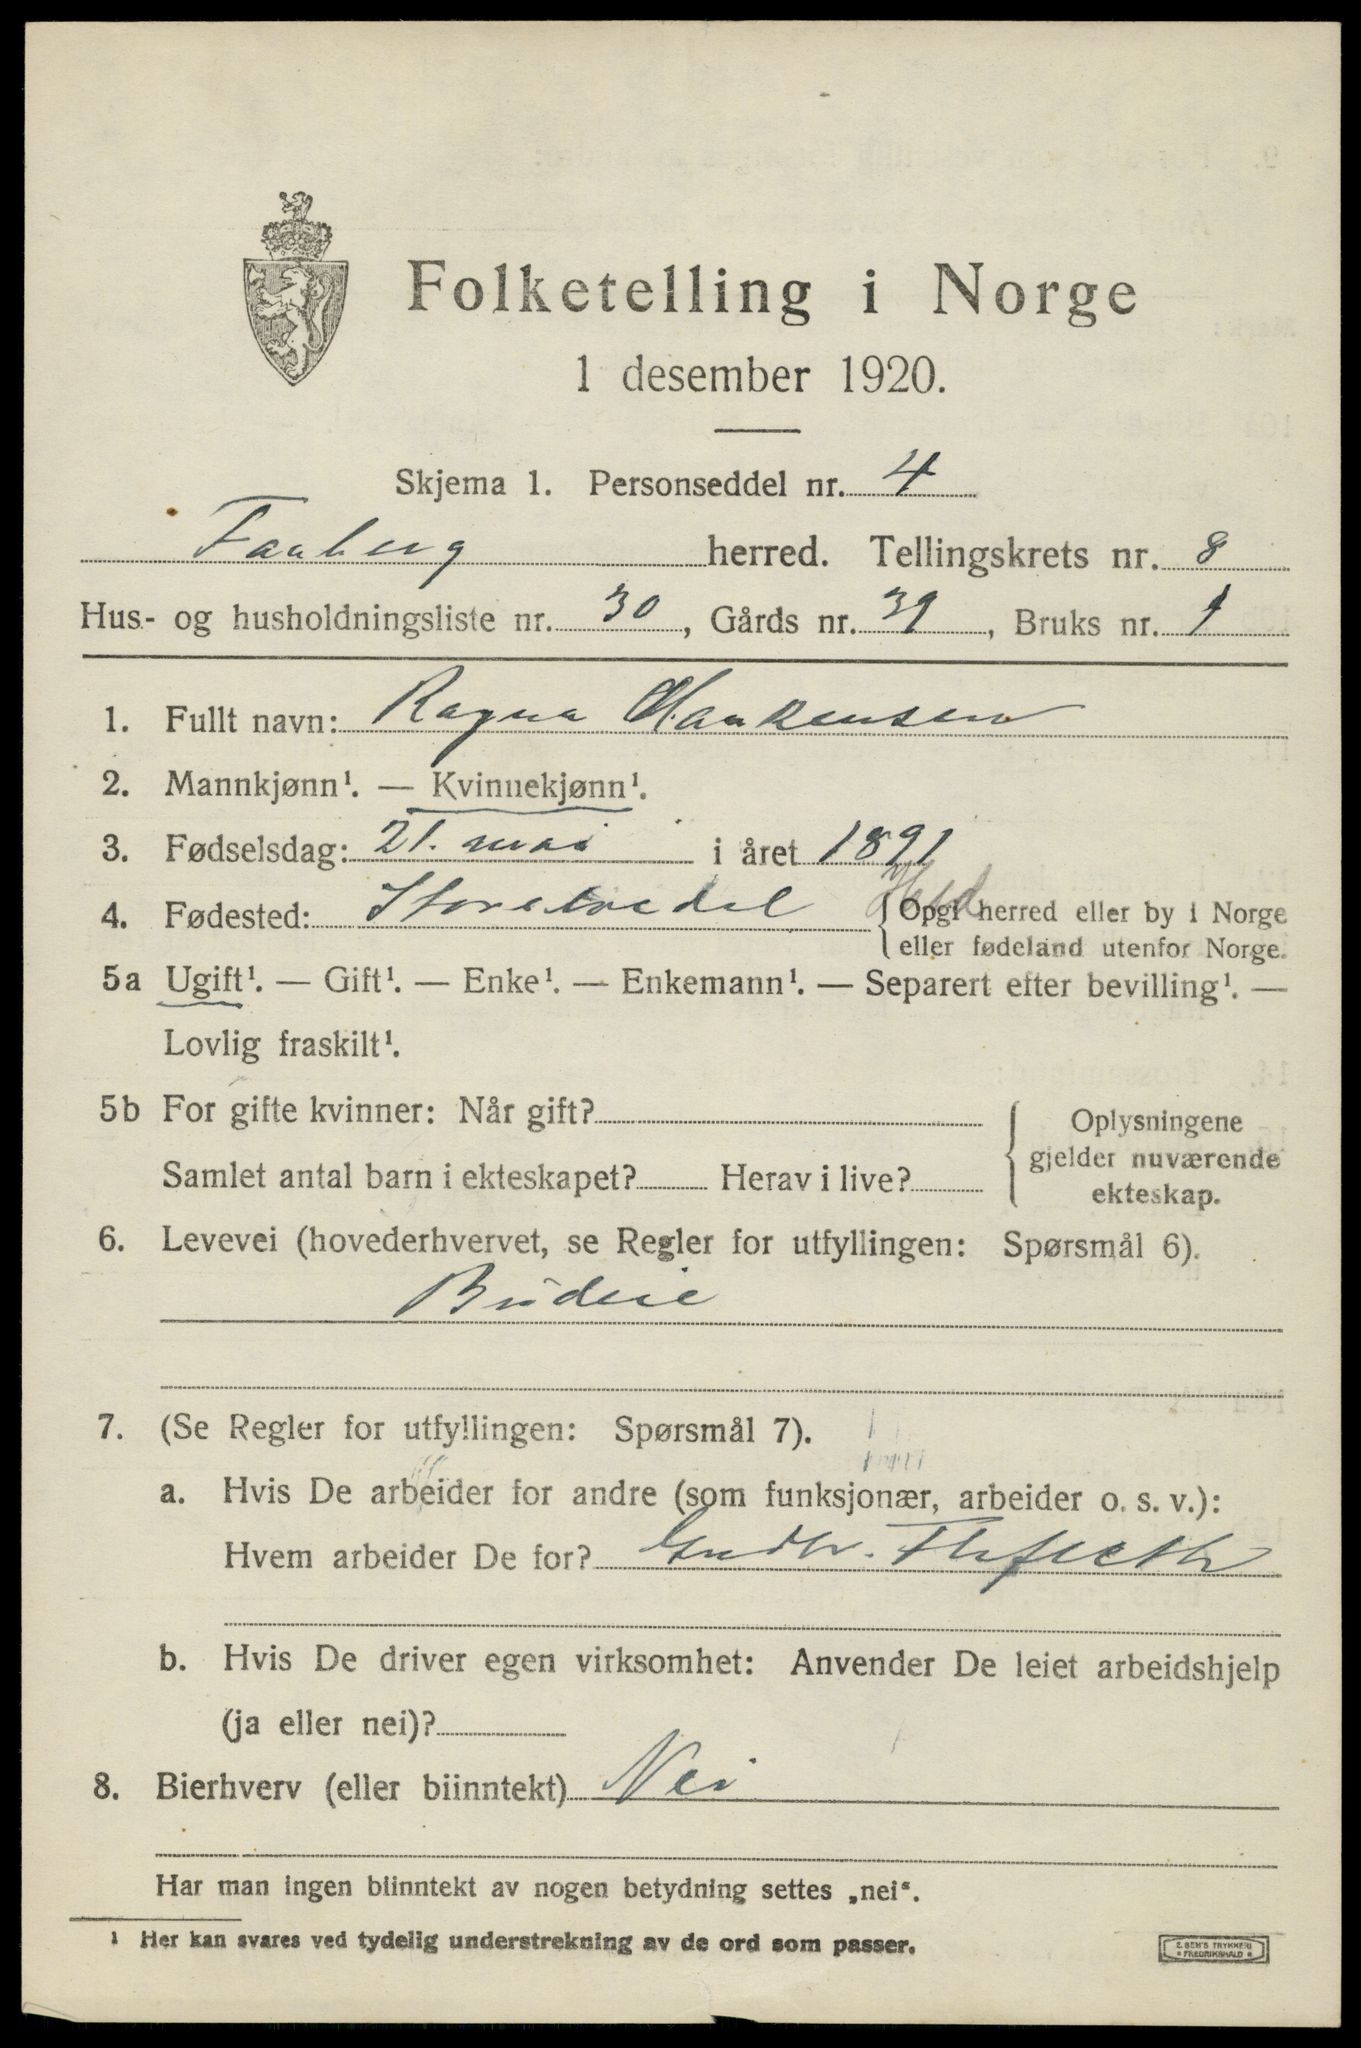 Folketelling i Norge
1 desember 1920.
Skjema 1. Personseddel nr. 4
Faaberg herred. Tellingskrets nr. 8
Hus- og husholdningsliste nr. 30, Gårds nr. 39, Bruks nr. 1
1. Fullt navn: Ragna Haakensen
2. Mannkjønn¹. — Kvinnekjønn¹.
3. Fødselsdag: 21. mai i året 1891
4. Fødested: Storelvedal Hed {Opgi herred eller by i Norge
eller fødeland utenfor Norge.
5a Ugift¹. — Gift¹. — Enke¹. — Enkemann¹. — Separert efter bevilling¹. —
Lovlig fraskilt¹.
5b For gifte kvinner: Når gift?
Samlet antal barn i ekteskapet? Herav i live?
{Oplysningene
gjelder nuværende
ekteskap.
6. Levevei (hovederhvervet, se Regler for utfyllingen: Spørsmål 6).
Budeie
7. (Se Regler for utfyllingen: Spørsmål 7).
a. Hvis De arbeider for andre (som funksjonær, arbeider o. s. v.):
Hvem arbeider De for? Gudbr.
b. Hvis De driver egen virksomhet: Anvender De leiet arbeidshjelp
(ja eller nei)?
8. Bierhverv (eller biinntekt) Nei
Har man ingen biinntekt av nogen betydning settes „nei“.
¹ Her kan svares ved tydelig understrekning av de ord som passer.
E. SEM'S TRYKKERI
* FREDRIKSHALD *